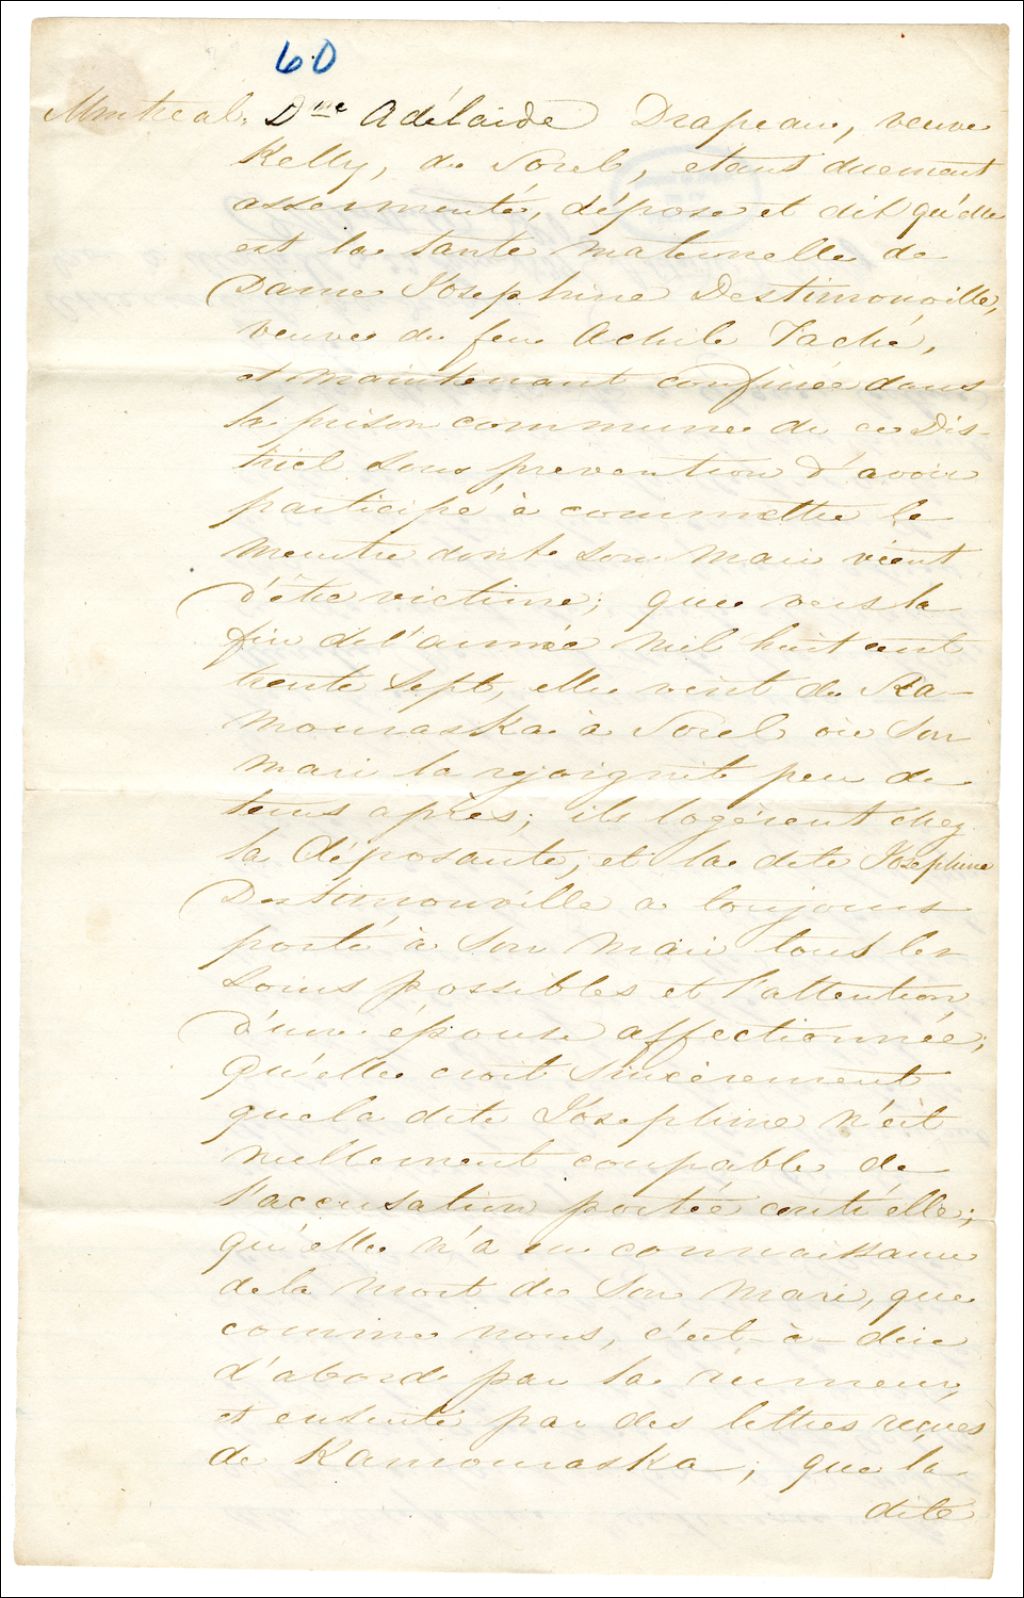 60
Montreal. Dme Adélaide Drapeau, veuve
Kelly, de Sorel, etant duement
assermenté, dépose et dit qu'elle
est la tante maternelle de
Dame Josephine Destimonville,
veuve de feu Achile Taché,
et maintenant confinée dans
la prison commune de ce Dis-
trict sous prevention d'avoir
participé à commettre le
meurtre dont son mari vient
d'être victime; que vers la
fin de l'année mil huit cent
trente sept, elle vint de Ka-
mouraska à Sorel où son
mari la rejoignit peu de
tems après; ils logèrent chez
la déposante, et la dite Josephine
Destimonville a toujours
porté à son mari tous les
soins possibles et l'attention
d'une épouse affectionnée;
qu'elle croit sincèrement
que la dite Josephine n'est
nullement coupable de
l'accusation portée contr'elle;
qu'elle n'a eu connaissance
de la mort de son mari, que
comme nous, c'est-à-dire
d'abord par la rumeur,
et ensuite par des lettres reçues
de Kamouraska; que la
dite